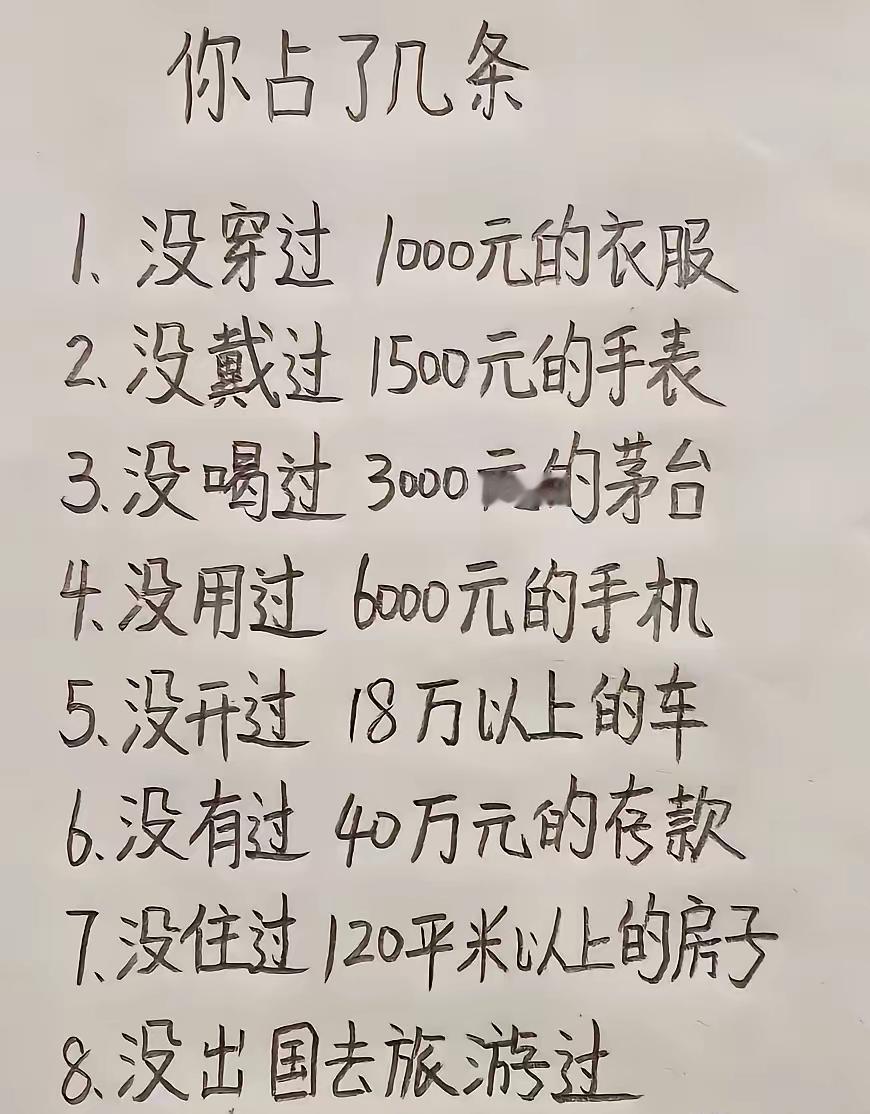 你占了几条
1、没穿过 1000元的衣服
2、没戴过 1500元的手表
3、没喝过 3000元的茅台
4、没用过 6000元的手机
5、没开过 18万以上的车
6、没有过 40万元的存款
7、没住过 120平米以上的房子
8、没出国去旅游过